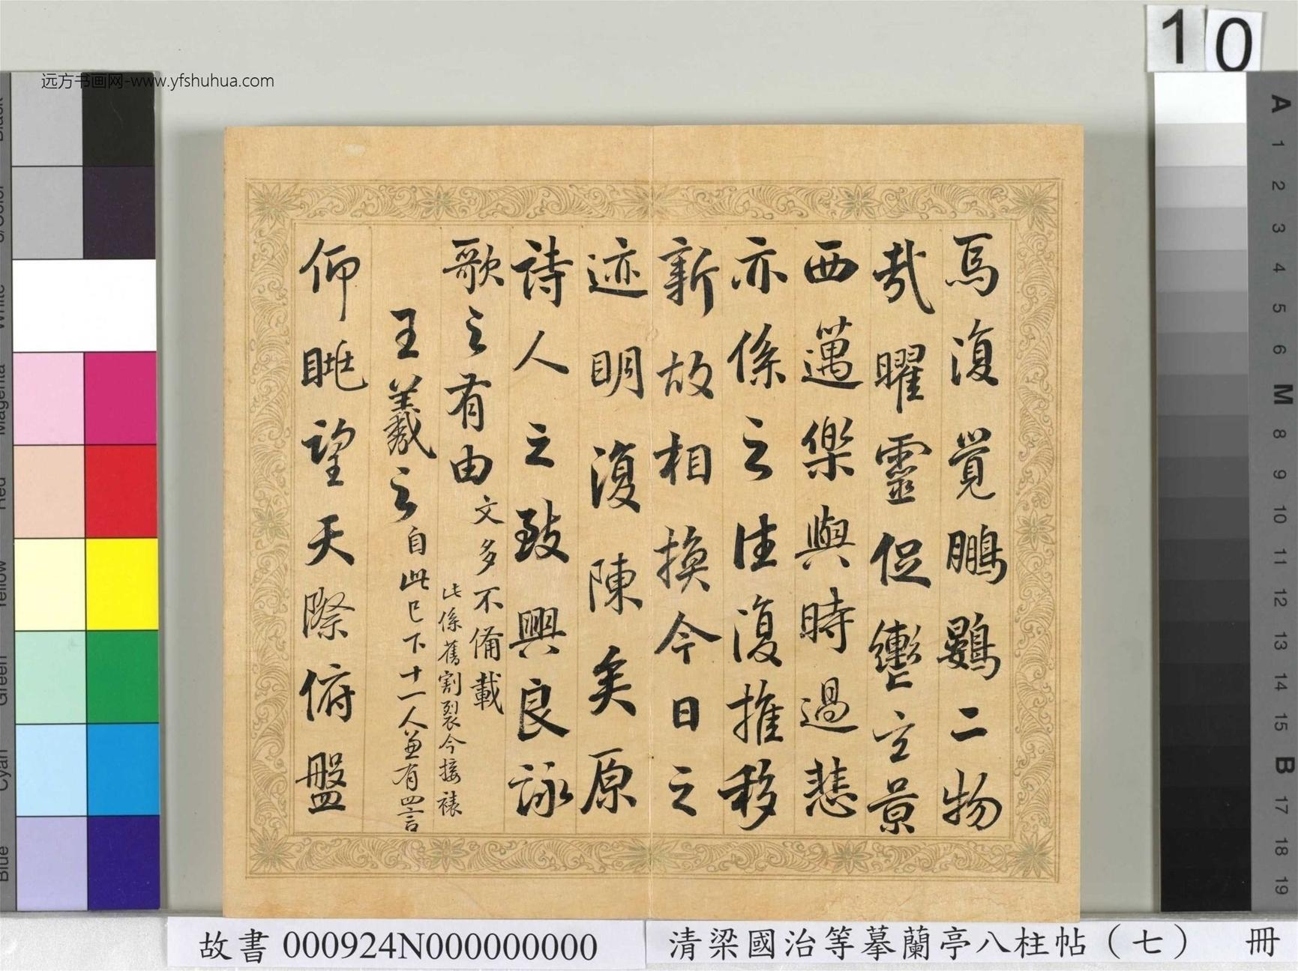 远方书画网-www.yfshuhua.com
10
焉復覺鵬鷃二物
哉曜靈促轡玄景
西邁樂與時過悲
亦係之往復推移
新故相換今日之
迹明復陳矣原
詩人之致興良詠
歌之有由文多不備載
此係舊割裂今接裱
王羲之自此已下十一人兼有四言
仰眺望天際俯盤
故書 000924N000000000
清梁國治等摹蘭亭八柱帖（七） 冊
Black
3/Color
White
Magenta
Red
Yellow
Green
Cyan
Blue
A
1
2
3
4
5
6
M
8
9
10
11
12
13
14
15
B
17
18
19